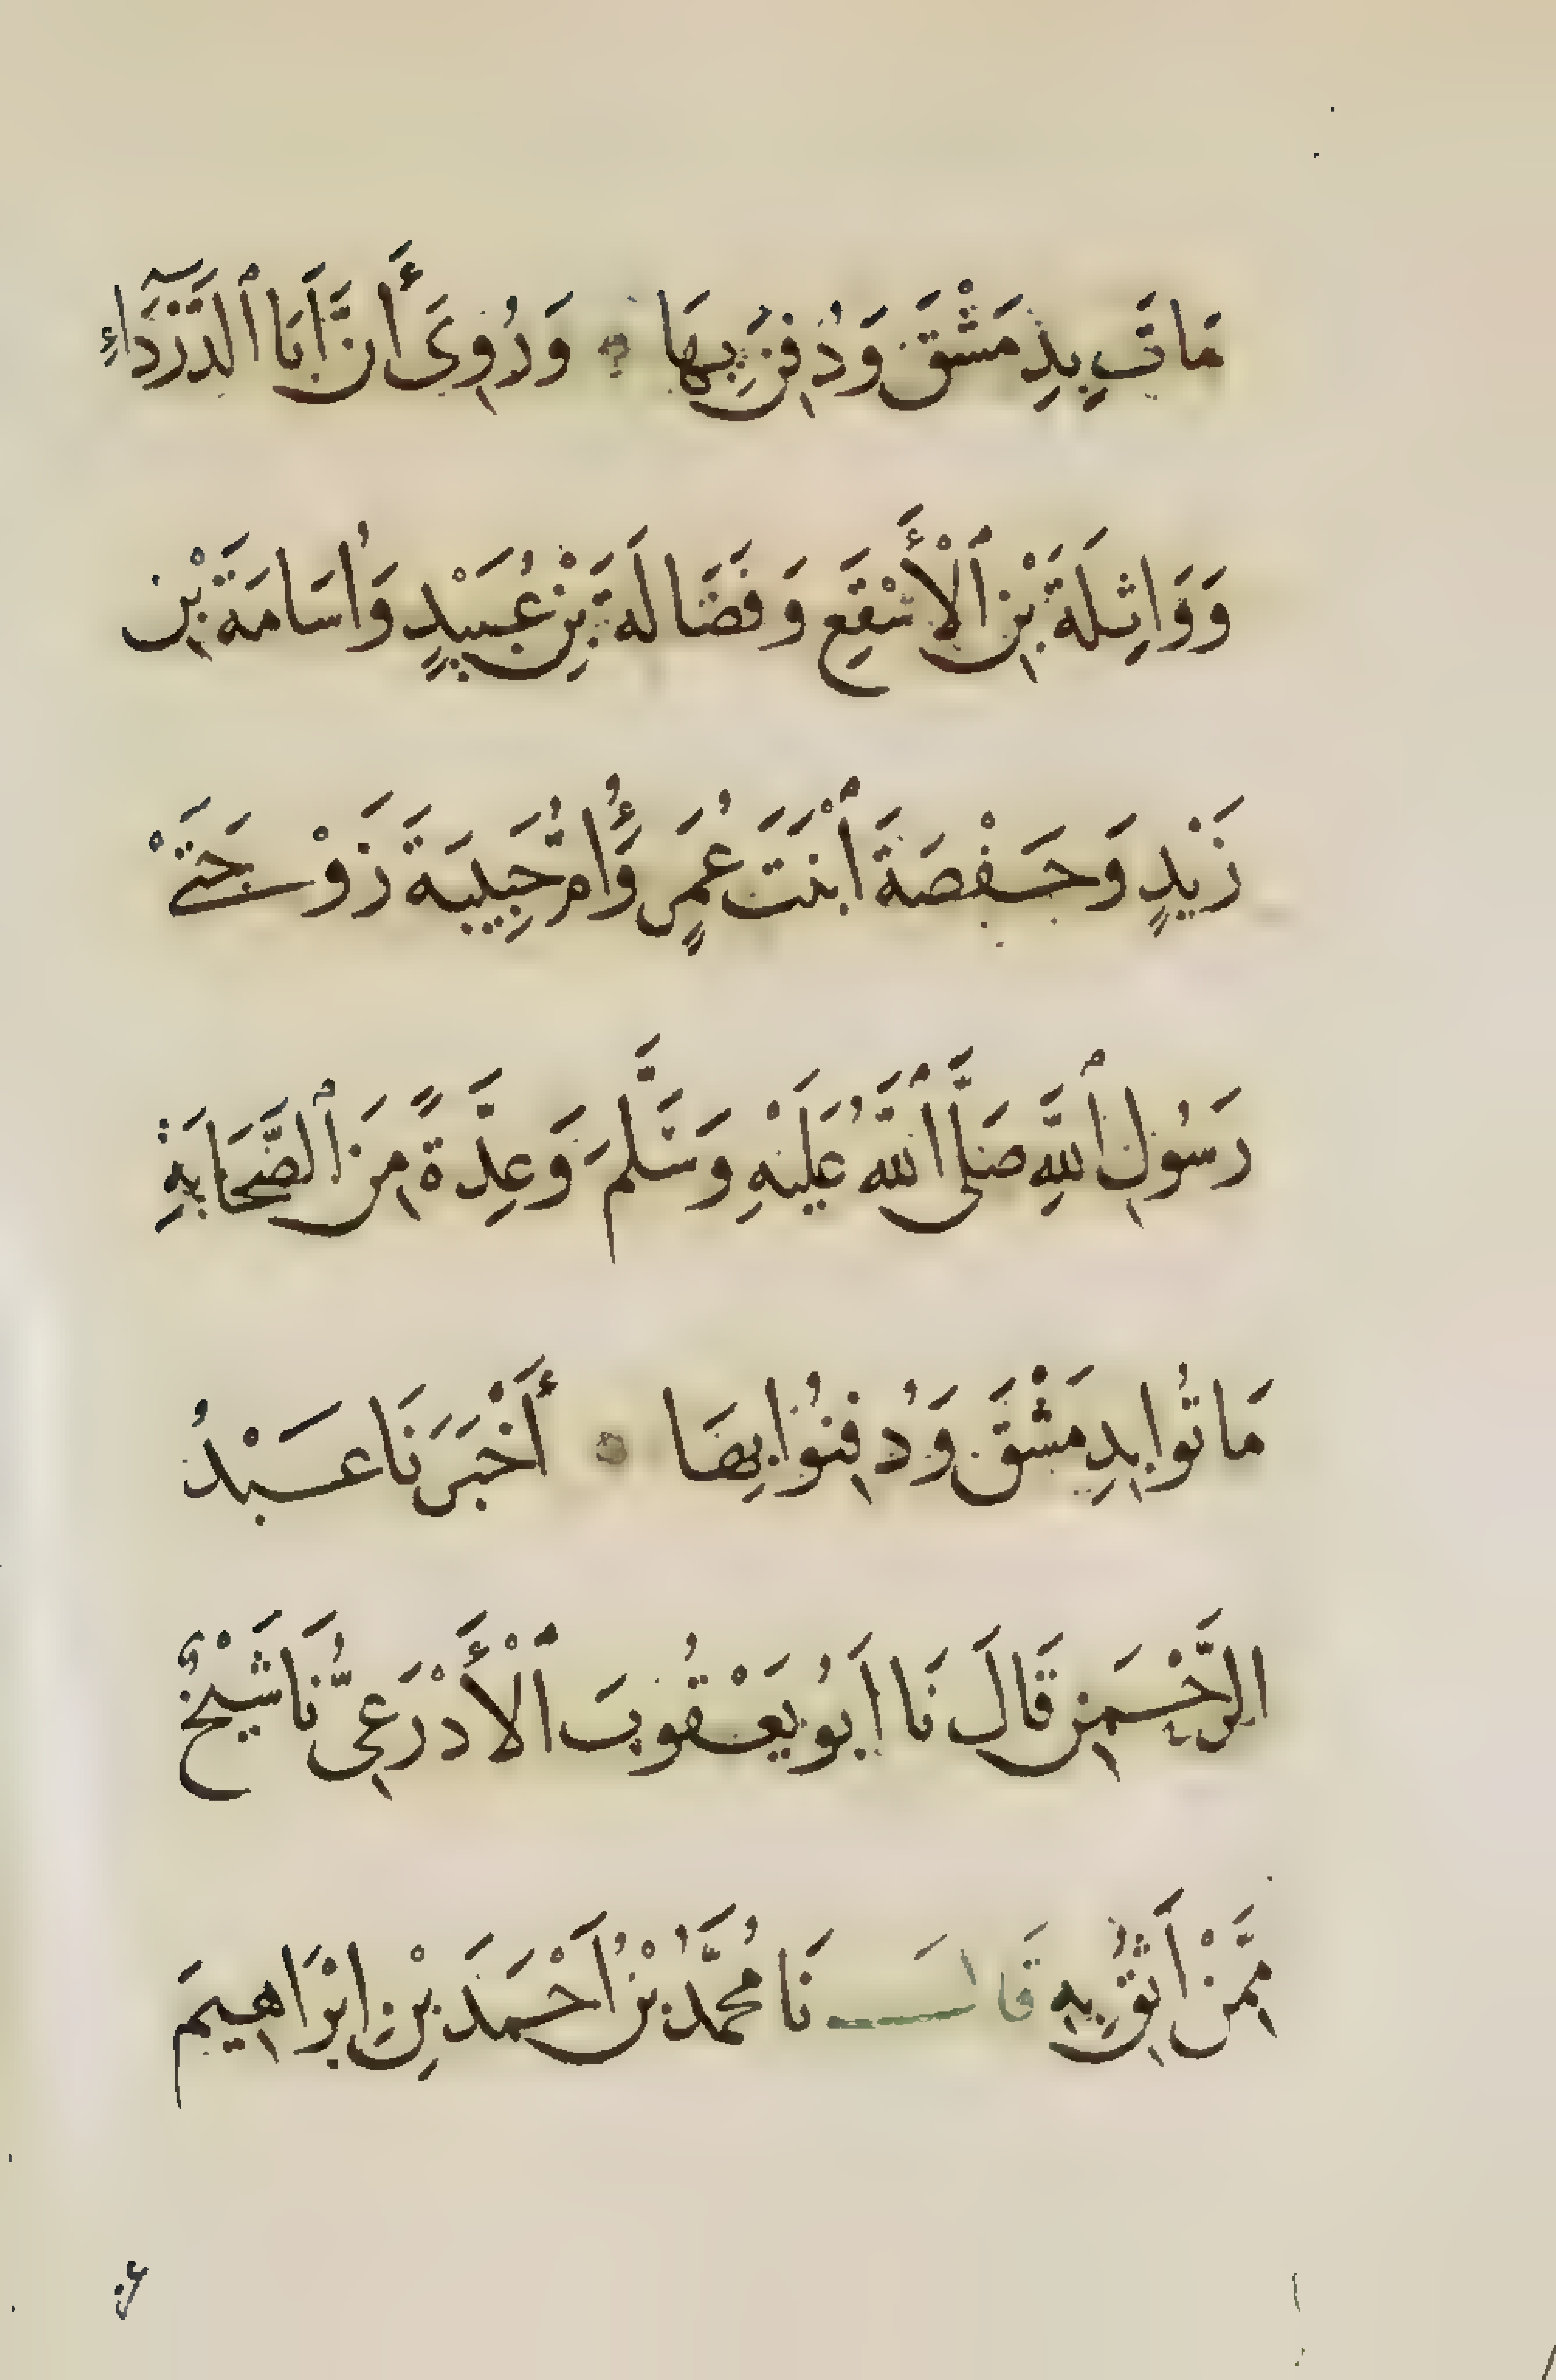 مَاتَ بِدِمَشْقَ وَدُفِنَ بِهَا وَرُوِيَ أَنَّ أَبَا ٱلدَّرْدَآءِ
وَوَاثِلَةَ بْنِ ٱلْأَسْقَعِ وَفَضَالَةَ بْنِ عُبَيْدٍ وَأُسَامَةَ بْنِ
زَيْدٍ وَحَفْصَةَ ٱبْنَتَ عُمَرٍ وَأُمِّ حَبِيبَةَ زَوْجَتَيْ
رَسُولِ ٱللَّهِ صَلَّى ٱللَّهُ عَلَيْهِ وَسَلَّمَ وَعِدَّةً مِنَ ٱلصَّحَابَةِ
مَاتُوا بِدِمَشْقَ وَدُفِنُوا بِهَا أَخْبَرَنَا عَبْدُ
الرَّحْمَنِ قَالَ نَا أَبُو يَعْقُوبَ ٱلْأَذْرَعِيُّ نَا شَيْخٌ
مِمَّنْ أَثِقُ بِهِ قَالَ نَا مُحَمَّدُ بْنُ أَحْمَدَ بْنِ إِبْرَاهِيمَ